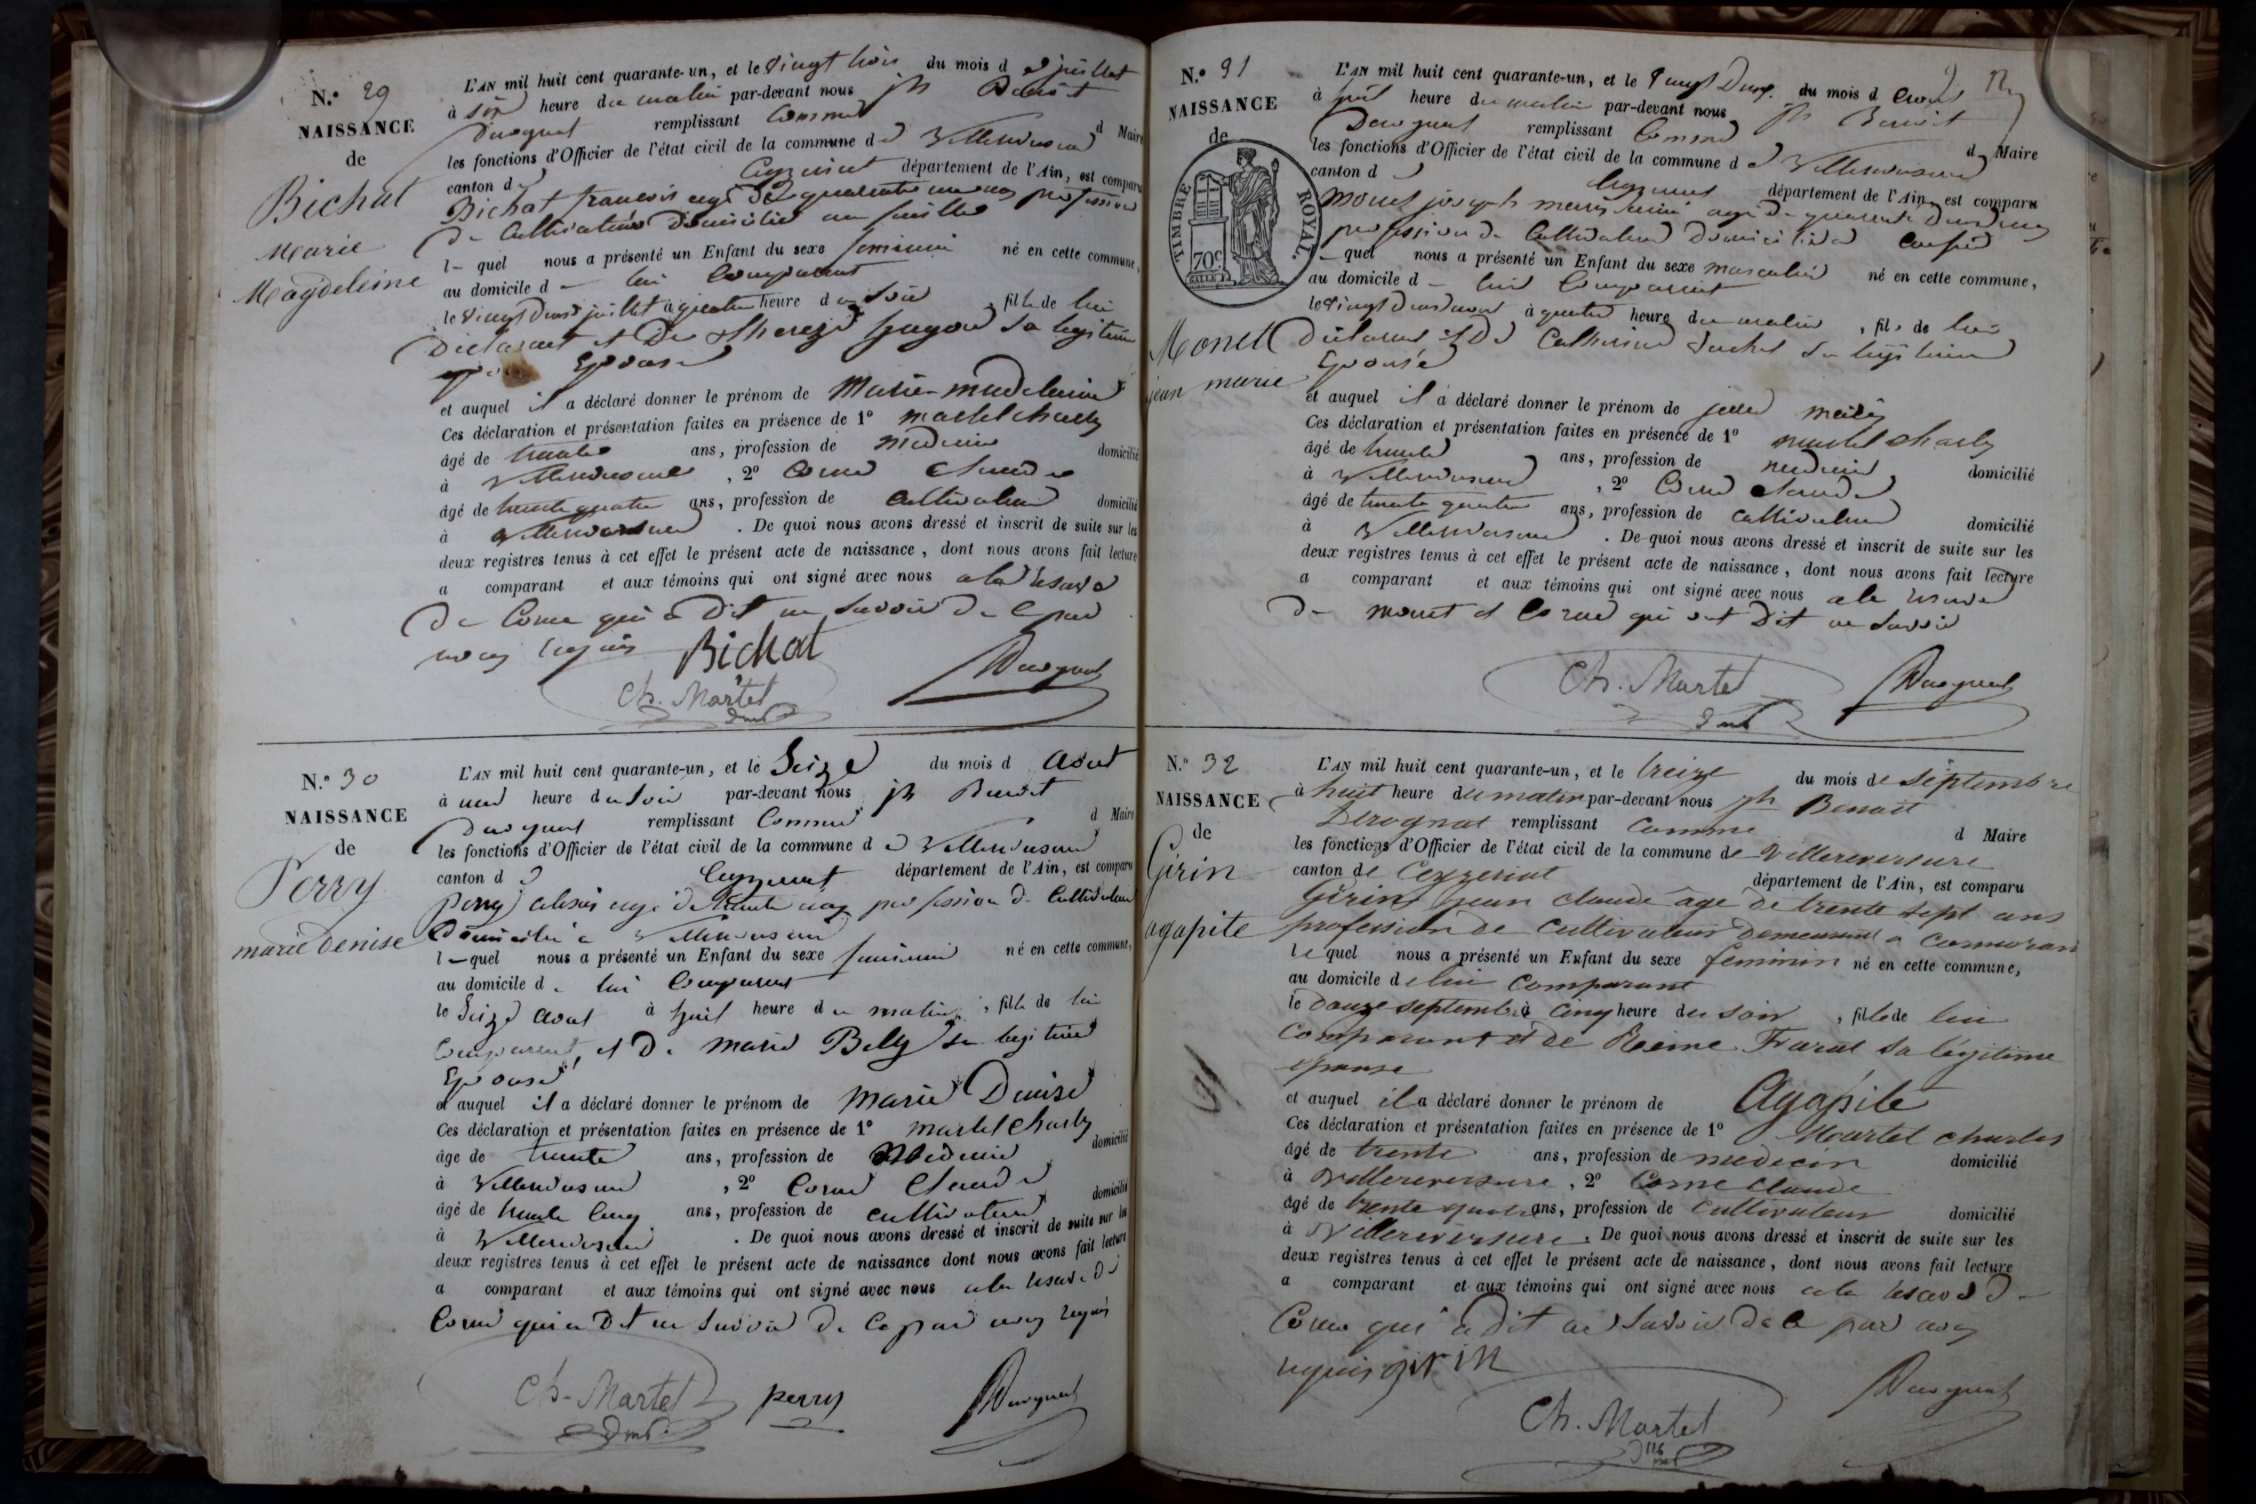 N.º 29
NAISSANCE
de
Bichat
Marie
Magdeleine
L'AN mil huit cent quarante-un, et le vingt trois du mois de juillet
à six heure du matin par-devant nous jh Benoit
Derognat remplissant comme d Maire
les fonctions d'Officier de l'état civil de la commune de Villereversure
canton de Ceyzeriat département de l'Ain, est comparu
Bichat francois agé de quarante un ans profession
de Cultivateur domicilié
l- quel nous a présenté un Enfant du sexe feminin né en cette commune,
au domicile d- lui Comparant
le vingt deux juillet à quatre heure du soir, fille de lui
Déclarant et De Therese Gugon Sa legitime
Epouse
et auquel il a déclaré donner le prénom de Marie-madeleine
Ces déclaration et présentation faites en présence de 1º martel charles
âgé de trente ans, profession de medecin domicilié
à Villereversure, 2º Corne Claude
âgé de trente quatre ans, profession de Cultivateur domicilié
à Villereversure. De quoi nous avons dressé et inscrit de suite sur les
deux registres tenus à cet effet le présent acte de naissance, dont nous avons fait lecture
a comparant et aux témoins qui ont signé avec nous a la reserve
De Corne qui a Dit ne Savoir De ce par
nous requis Bichat
Derognat
Ch. Martel
dmp
N.º 30
NAISSANCE
de
Perry
marie denise
L'AN mil huit cent quarante-un, et le Seize du mois d Aout
à une heure du Soir par-devant nous jh Benoit
Derognat remplissant Comme d Maire
les fonctions d'Officier de l'état civil de la commune de Villereversure
canton de Ceyzeriat département de l'Ain, est comparu
perry alexis agé de trente ans profession de Cultivateur
Domicilié a Villereversure
l-quel nous a présenté un Enfant du sexe feminin né en cette commune,
au domicile de lui Comparant
le Seize Aout à huit heure du matin, fille de lui
Comparant, et De marie Billy sa legitime
Epouse
et auquel il a déclaré donner le prénom de Marie Denise
Ces déclaration et présentation faites en présence de 1º martel charles
âge de trente ans, profession de Medecin domicilié
à Villereversure, 2º Corne Claude
âgé de trente cinq ans, profession de cultivateur domicilié
à Villereversure. De quoi nous avons dressé et inscrit de suite sur les
deux registres tenus à cet effet le présent acte de naissance dont nous avons fait lecture
a comparant et aux témoins qui ont signé avec nous a la reserve De
Corne qui a Dit ne Savoir De ce par nous requis
Ch. Martel perry Derognat
dmp
N.º 31
NAISSANCE
de
TIMBRE ROYAL.
70c
Monet
jean marie
L'AN mil huit cent quarante-un, et le vingt Deux du mois d aout
à huit heure du matin par-devant nous jh Benoit
Derognat remplissant Comme d Maire
les fonctions d'Officier de l'état civil de la commune de Villereversure
canton de Ceyzeriat département de l'Ain, est comparu
monet joseph marie agé de quarante deux ans
profession de Cultivateur domicilié a
l-quel nous a présenté un Enfant du sexe masculin né en cette commune,
au domicile d- lui Comparant
le vingt deux aout à quatre heure du matin, fils de lui
Déclarant et De Catherine Sa legitime
Epouse
et auquel il a déclaré donner le prénom de jean marie
Ces déclaration et présentation faites en présence de 1º martel charles
âgé de trente ans, profession de medecin domicilié
à Villereversure, 2º Corne Claude
âgé de trente quatre ans, profession de cultivateur domicilié
à Villereversure. De quoi nous avons dressé et inscrit de suite sur les
deux registres tenus à cet effet le présent acte de naissance, dont nous avons fait lecture
a comparant et aux témoins qui ont signé avec nous a la reserve
De monet et Corne qui ont Dit ne Savoir
Ch. Martel Derognat
dmp
N.º 32
NAISSANCE
de
Girin
agapite
L'AN mil huit cent quarante-un, et le treize du mois de septembre
à huit heure du matin par-devant nous jh Benoit
Derognat remplissant comme d Maire
les fonctions d'Officier de l'état civil de la commune de Villereversure
canton de Ceyzeriat département de l'Ain, est comparu
Girin jean claude âge de trente sept ans
profession de cultivateur demeurant a cormoran
le quel nous a présenté un Enfant du sexe feminin né en cette commune,
au domicile de lui comparant
le douze septembre à cinq heure du soir, fille de lui
comparant et de Reine Farat sa légitime
epouse
et auquel il a déclaré donner le prénom de Agapite
Ces déclaration et présentation faites en présence de 1º Martel charles
âgé de trente ans, profession de medecin domicilié
à Villereversure, 2º Corne Claude
âgé de trente quatre ans, profession de cultivateur domicilié
à Villereversure. De quoi nous avons dressé et inscrit de suite sur les
deux registres tenus à cet effet le présent acte de naissance, dont nous avons fait lecture
a comparant et aux témoins qui ont signé avec nous a la reserve De
Corne qui a dit ne Savoir de ce par nous
requis girin
Derognat
Ch. Martel